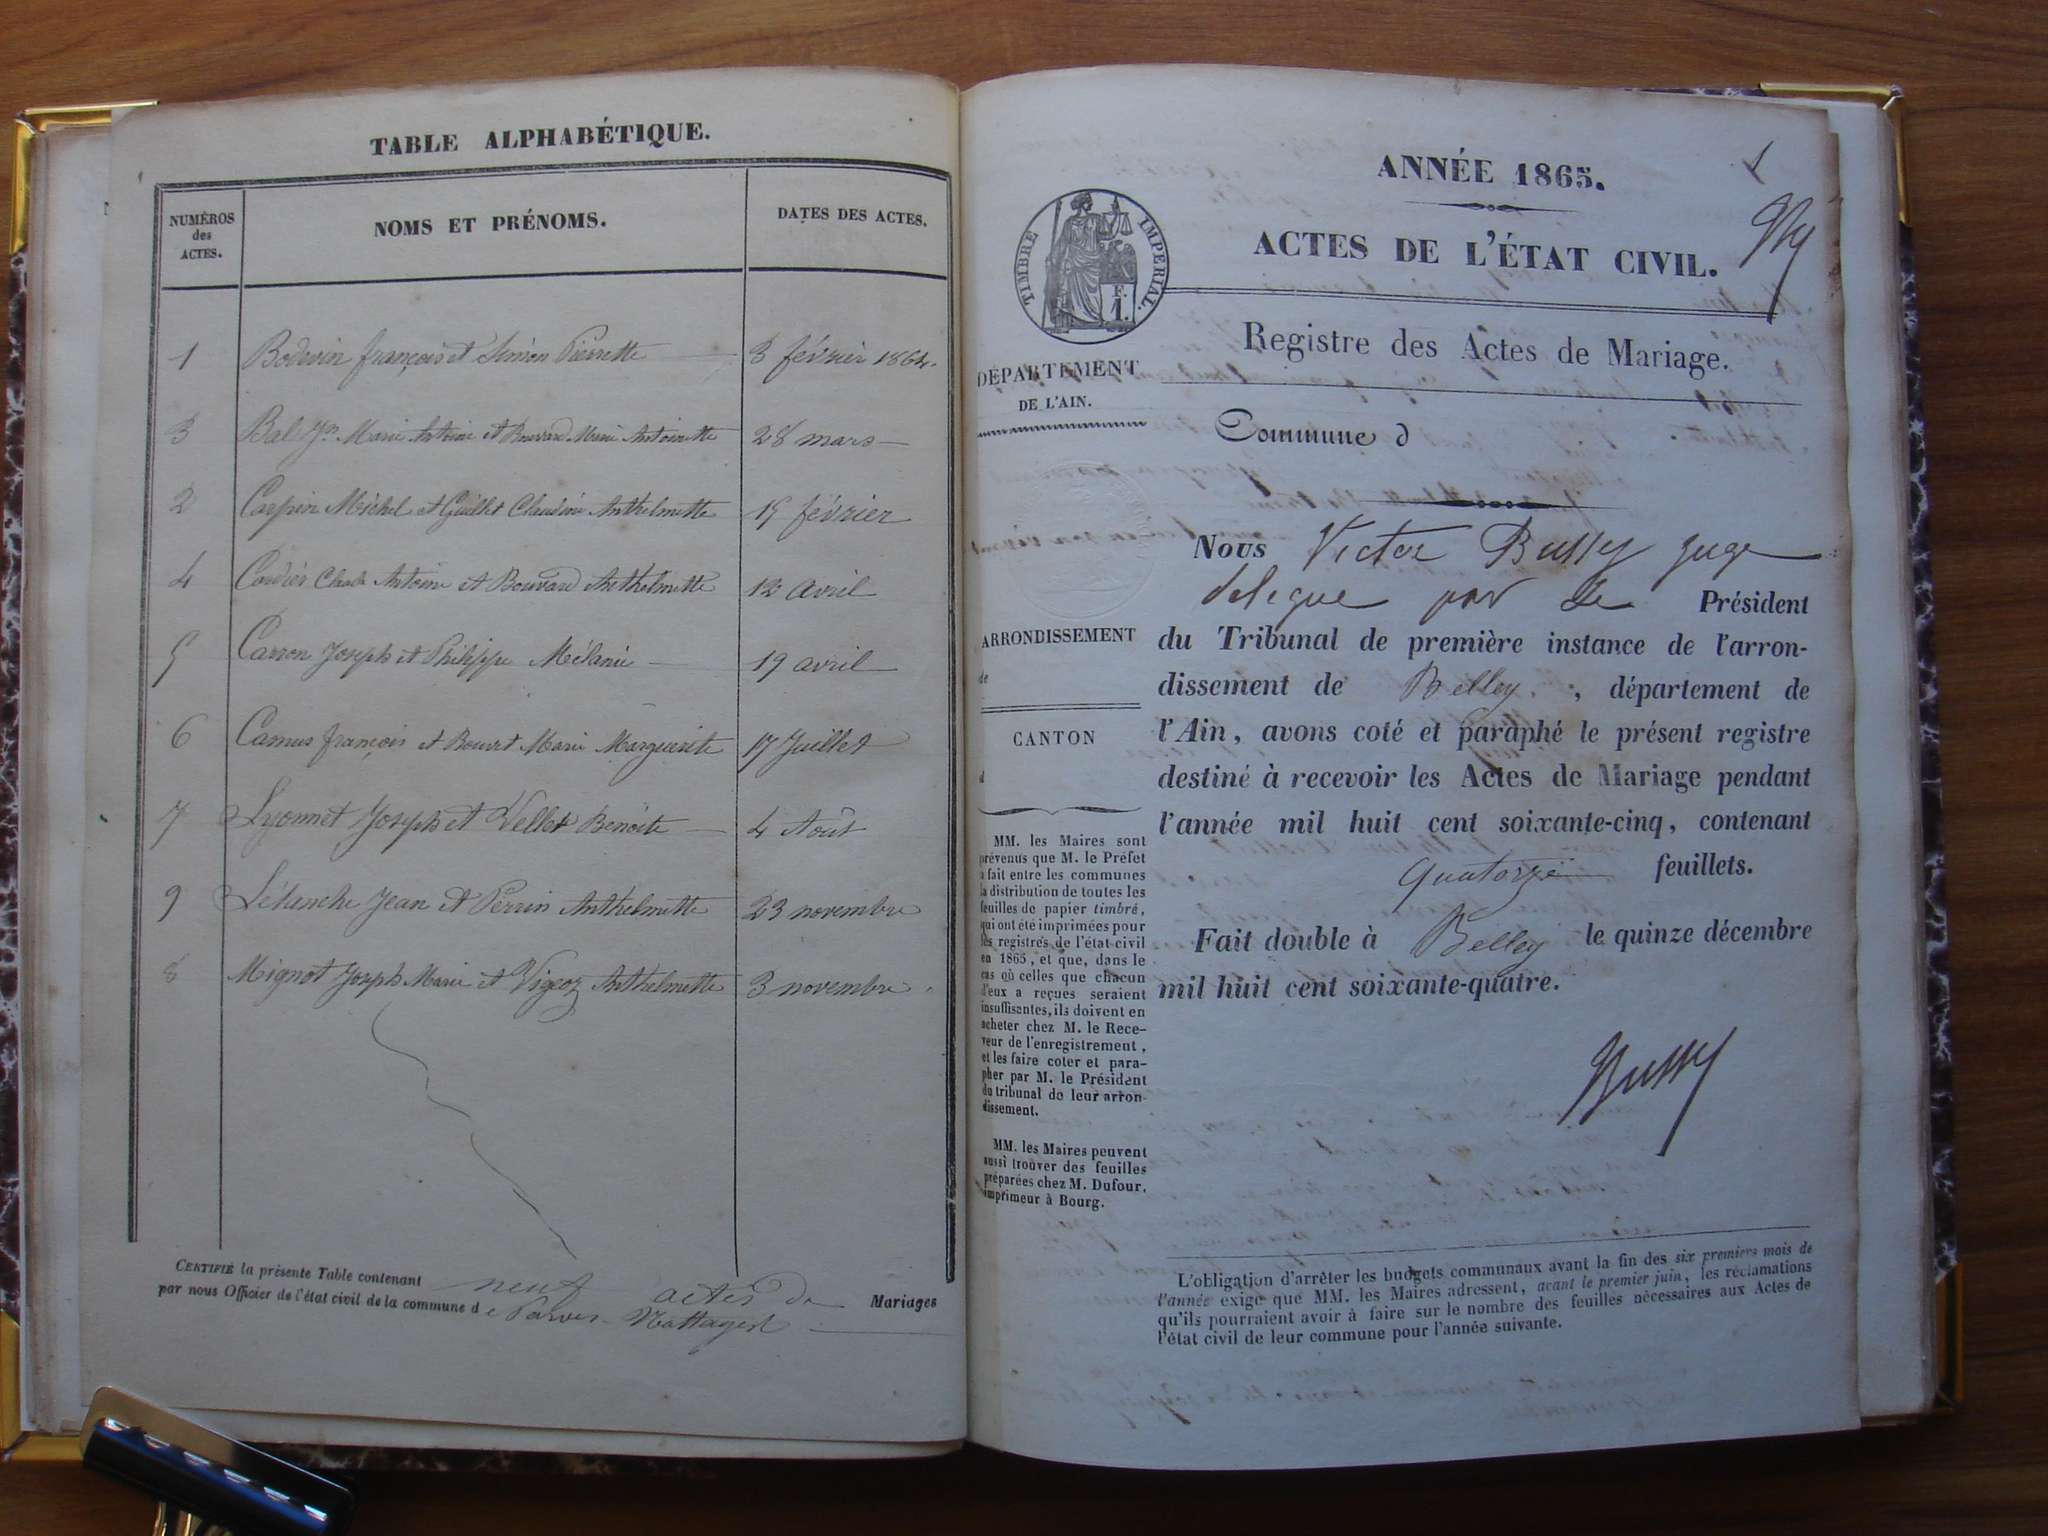 TABLE ALPHABÉTIQUE.
NUMÉROS
des
ACTES.
NOMS ET PRÉNOMS.
DATES DES ACTES.
1 Bodevin françois et Simon Pierrette 3 février 1864.
3 Bal Marie Antoine et Bouvard Marie Antoinette 28 mars
2 Carpier Michel et Guillet Claudine Anthelmette 15 février
4 Cordier Antoine et Bouvard Anthelmette 12 avril
5 Carron Joseph et Philippe Mélanie 19 avril
6 Camus françois et Bouvet Marie Marguerite 17 Juillet
7 Lyonnet Joseph et Vellet Benoîte 4 Août
9 Jean et Perrin Anthelmette 23 novembre
8 Mignot Joseph Marie et Vigeoz Anthelmette 3 novembre
CERTIFIÉ la présente Table contenant neuf actes de Mariages
par nous Officier de l'état civil de la commune de Parves Nattages
ANNÉE 1865.
1
TIMBRE IMPERIAL.
F.
1.
ACTES DE L'ÉTAT CIVIL.
Registre des Actes de Mariage.
DÉPARTEMENT
DE L'AIN.
Commune d
ARRONDISSEMENT
de
CANTON
d
MM. les Maires sont
prévenus que M. le Préfet
a fait entre les communes
la distribution de toutes les
feuilles de papier timbré,
qui ont été imprimées pour
les registres de l'état civil
en 1865, et que, dans le
cas où celles que chacun
d'eux a reçues seraient
insuffisantes, ils doivent en
acheter chez M. le Rece-
veur de l'enregistrement,
et les faire coter et para-
pher par M. le Président
du tribunal de leur arron-
dissement.
MM. les Maires peuvent
aussi trouver des feuilles
préparées chez M. Dufour,
imprimeur à Bourg.
Nous Victor Bussy juge
delegue par Le Président
du Tribunal de première instance de l'arron-
dissement de Belley, département de
l'Ain, avons coté et paraphé le présent registre
destiné à recevoir les Actes de Mariage pendant
l'année mil huit cent soixante-cinq, contenant
quatorze feuillets.
Fait double à Belley le quinze décembre
mil huit cent soixante-quatre.
Bussy
L'obligation d'arrêter les budgets communaux avant la fin des six premiers mois de
l'année exige que MM. les Maires adressent, avant le premier juin, les réclamations
qu'ils pourraient avoir à faire sur le nombre des feuilles nécessaires aux Actes de
l'état civil de leur commune pour l'année suivante.